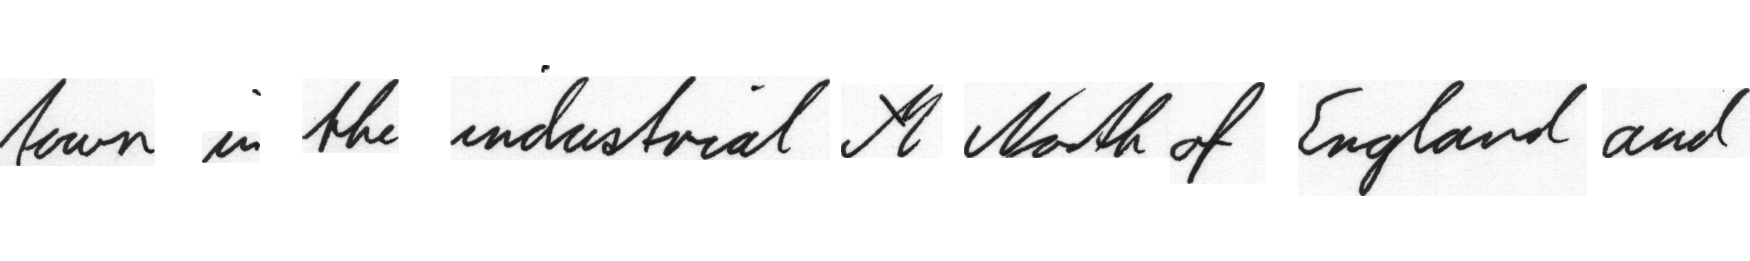 town in the industrial North of England and